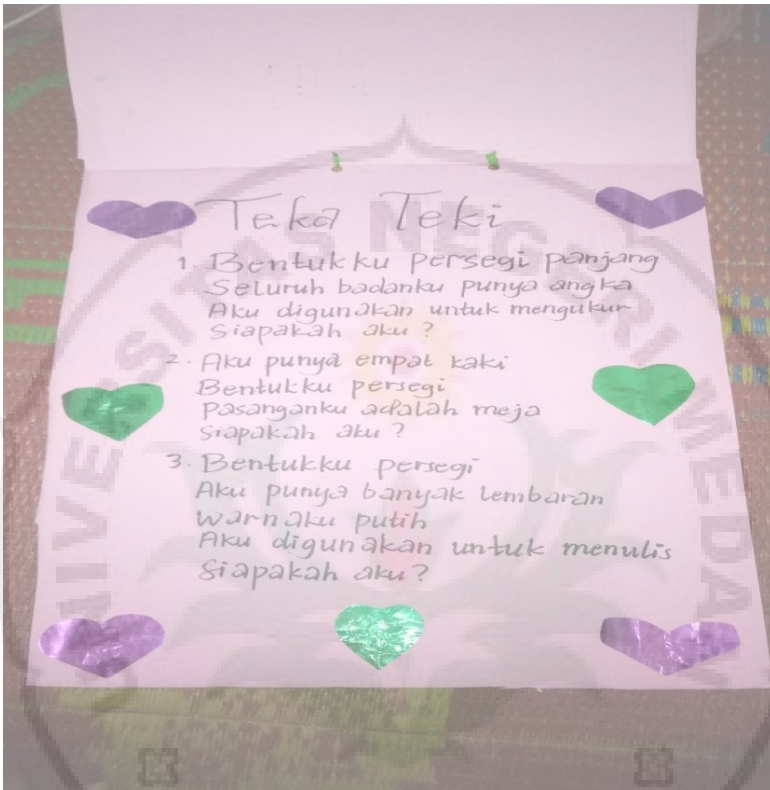 Teka Teki
1. Bentukku persegi panjang
Seluruh badanku punya angka
Aku digunakan untuk mengukur
Siapakah aku?
2. Aku punya empat kaki
Bentukku persegi
Pasanganku adalah meja
Siapakah aku?
3. Bentukku persegi
Aku punya banyak lembaran
Warnaku putih
Aku digunakan untuk menulis
Siapakah aku?
UNIVERSITAS NEGERI MEDAN